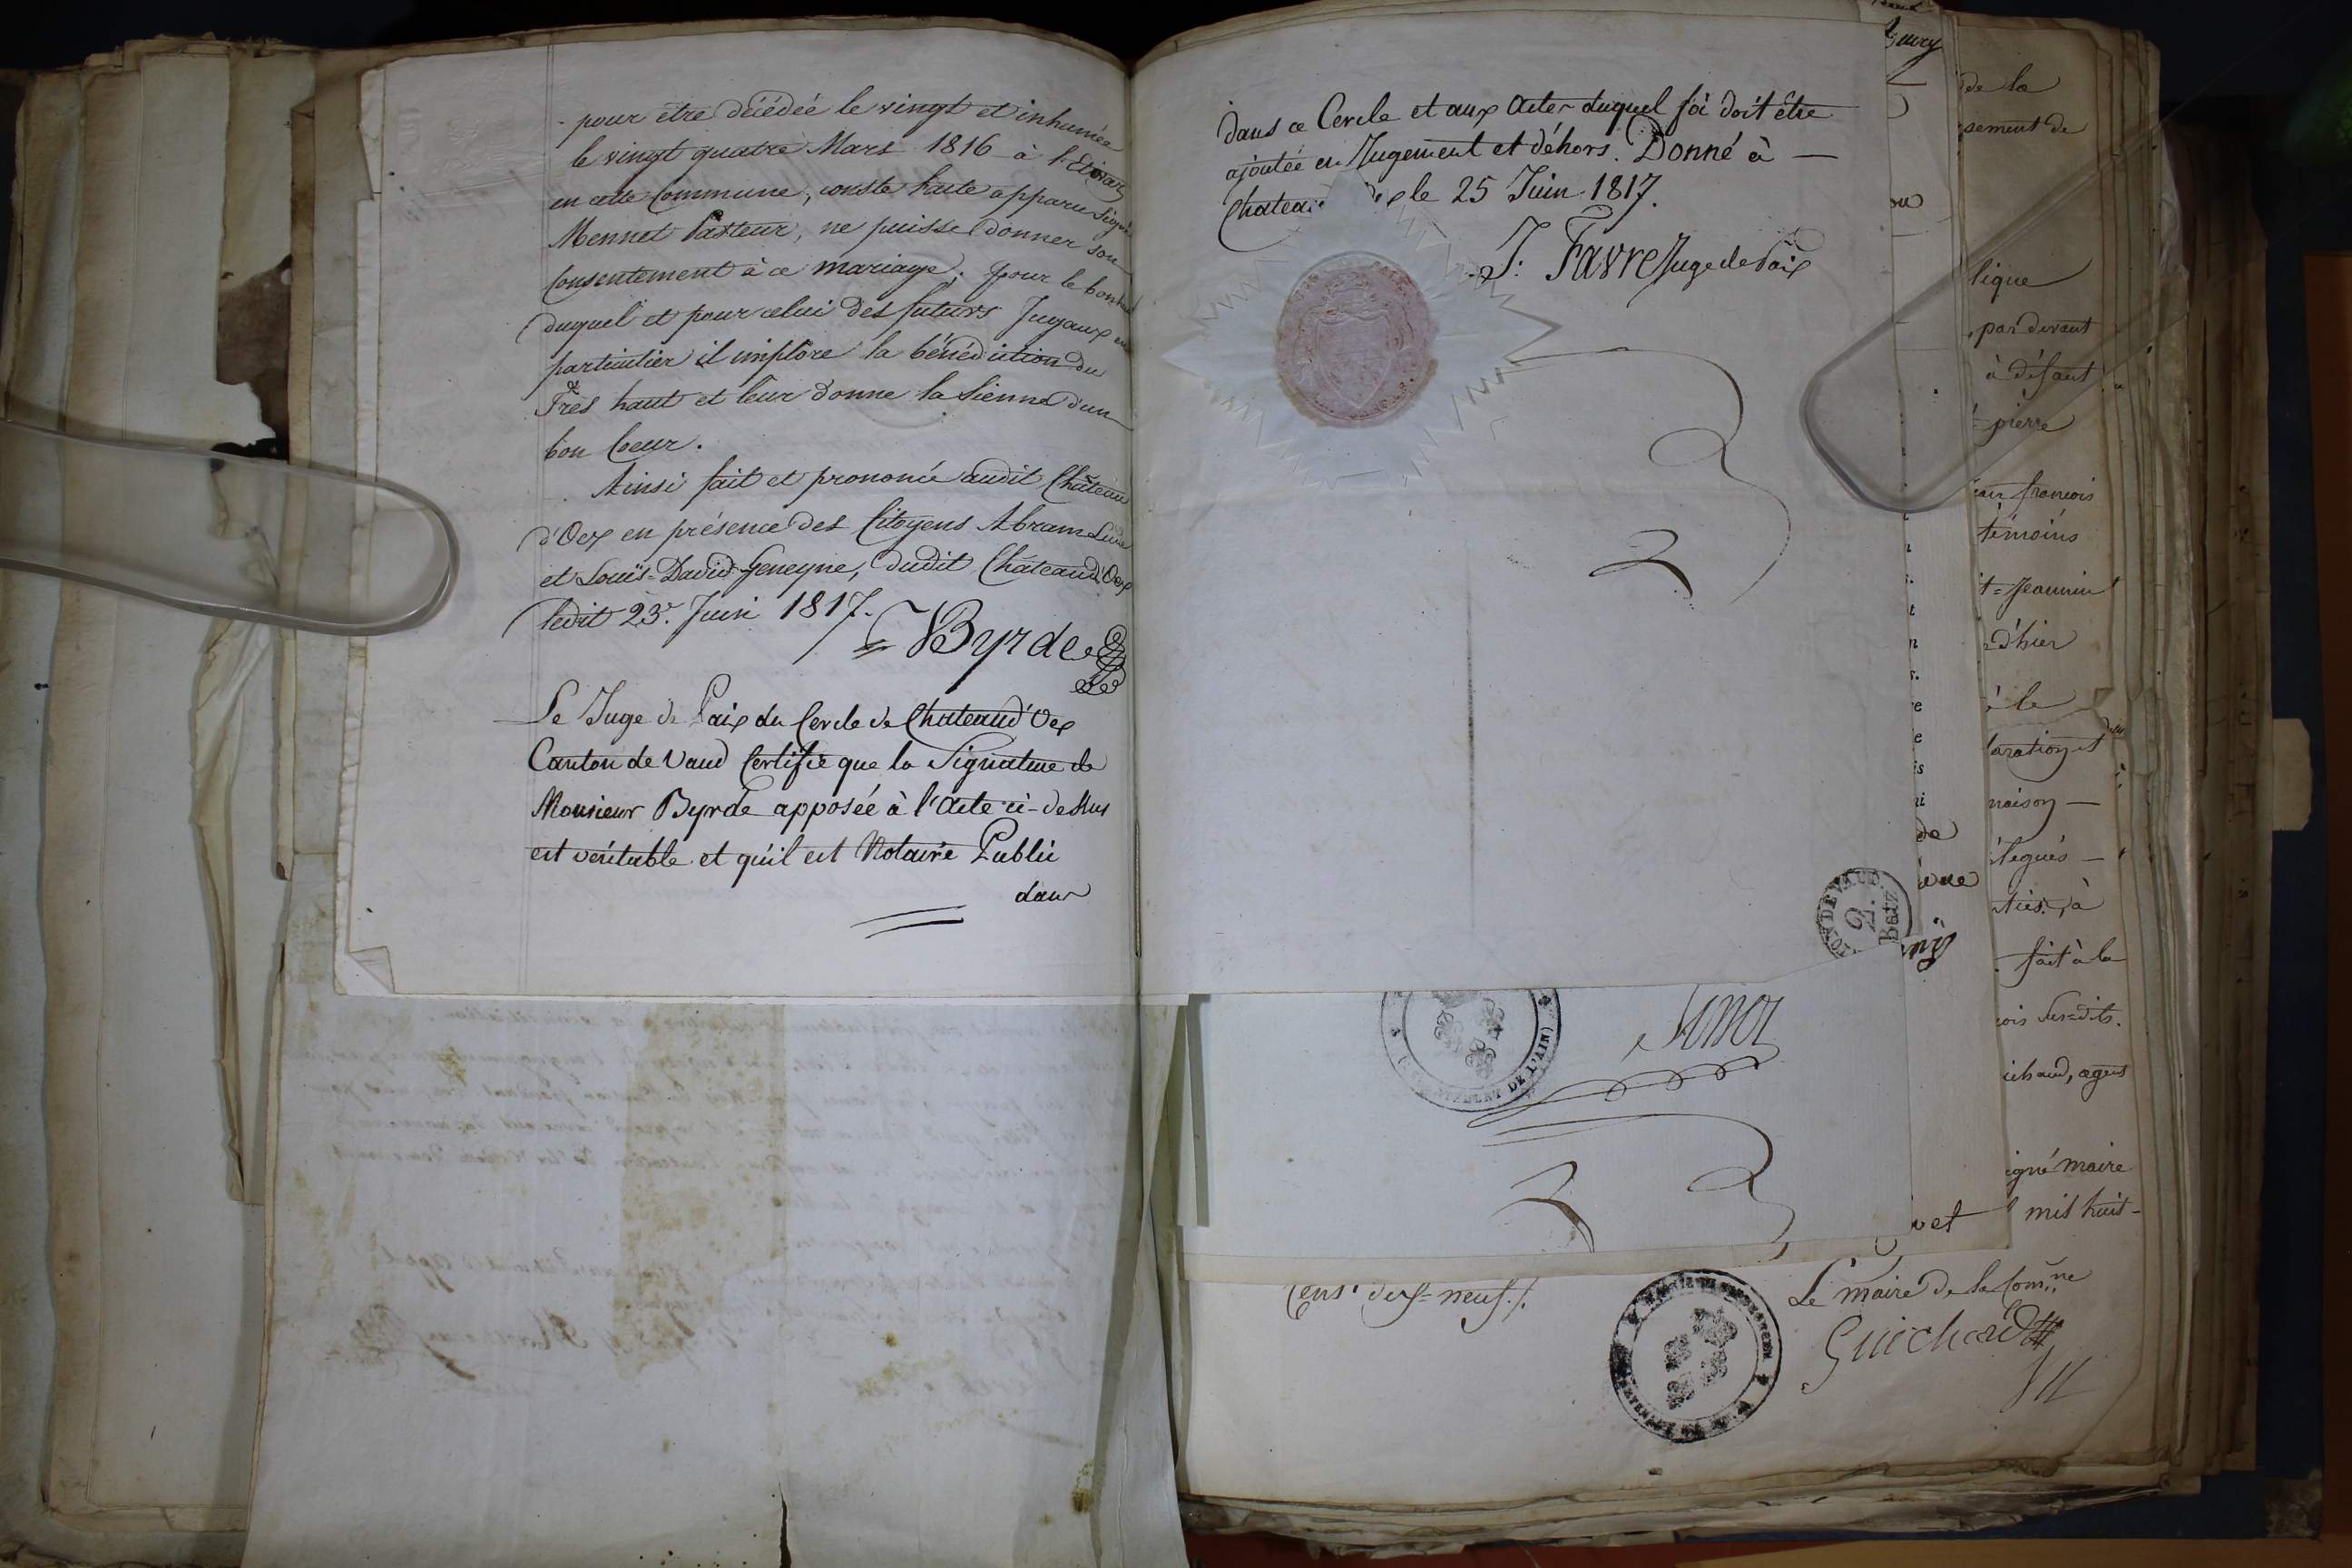 pour être décédée le vingt et inhumée
le vingt quatre Mars 1816 à l'Etivaz
en cette Commune, conste l'acte apparu signé
Mennet Pasteur, ne puisse donner son
Consentement à ce mariage; pour le bonheur
duquel et pour celui des futurs Jugaux en
particulier il implore la bénédiction du
Très haut et leur donne la Sienne d'un
bon Coeur.
Ainsi fait et prononcé audit Château
d'Oex en présence des Citoyens Abram
et Louïs-David Geneyne, dudit Château d'Oex
ledit 23e. Juin 1817.
Byrde
Le Juge de Paix du Cercle de Chateaud'Oex
Canton de Vaud Certifie que la Signature de
Monsieur Byrde apposée à l'Acte ci-dessus
est veritable et qu'il est Notaire Public
dans
dans ce Cercle et aux Actes duquel foi doit être
ajoutée en Jugement et déhors. Donné à —
Chateau le 25 Juin 1817.
J: Favre Juge de Paix
2.
Batz
DE L'AIN)
de la
sement de
lique
par devant
à défaut
pierre
françois
témoins
t=Jeannin
d'hier
à le
aration et
naison —
légués —
à
fait à la
sus=dits.
ichaud, agens
igné maire
vet
mil huit-
Cent dix=neuf./.
Le maire de la Comm.ne
Guichard